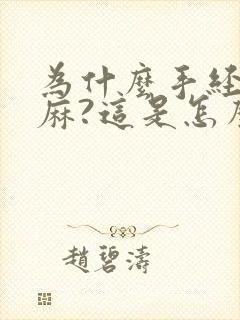 為什麼手經
麻?這是怎
趙碧濤